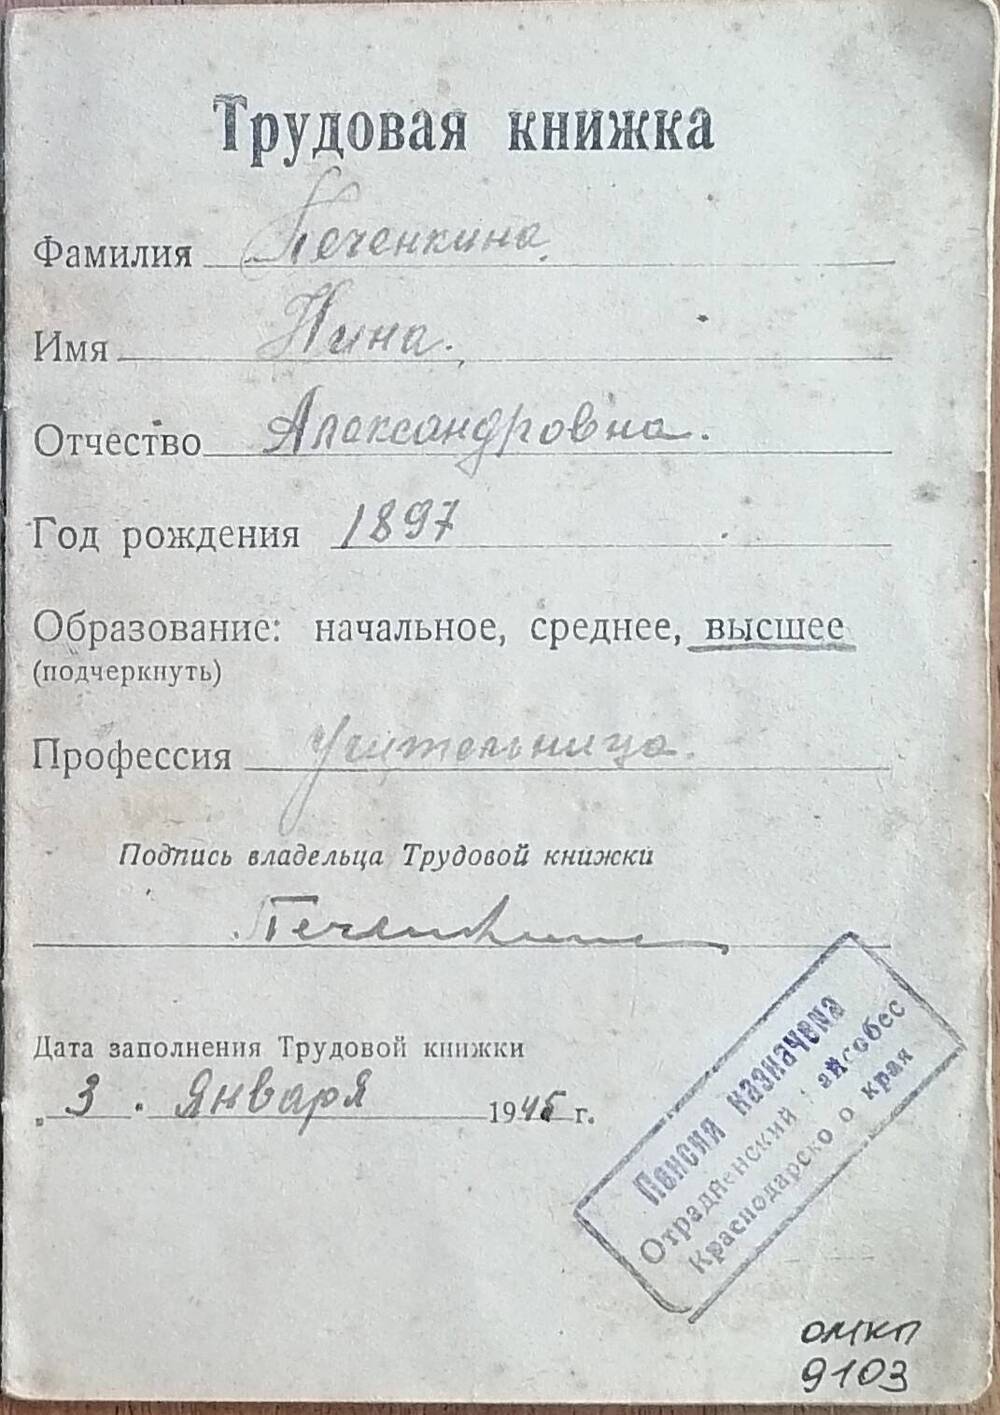 Трудовая книжка
Фамилия Печенкина.
Имя Нина.
Отчество Александровна.
Год рождения 1897
Образование: начальное, среднее, высшее
(подчеркнуть)
Профессия Учительница.
Подпись владельца Трудовой книжки
Печенкина
Дата заполнения Трудовой книжки
„ 3. Января 1945 г.
Пенсия назначена
Отрадненский айсобес
Краснодарско о края
ОМКП
9103